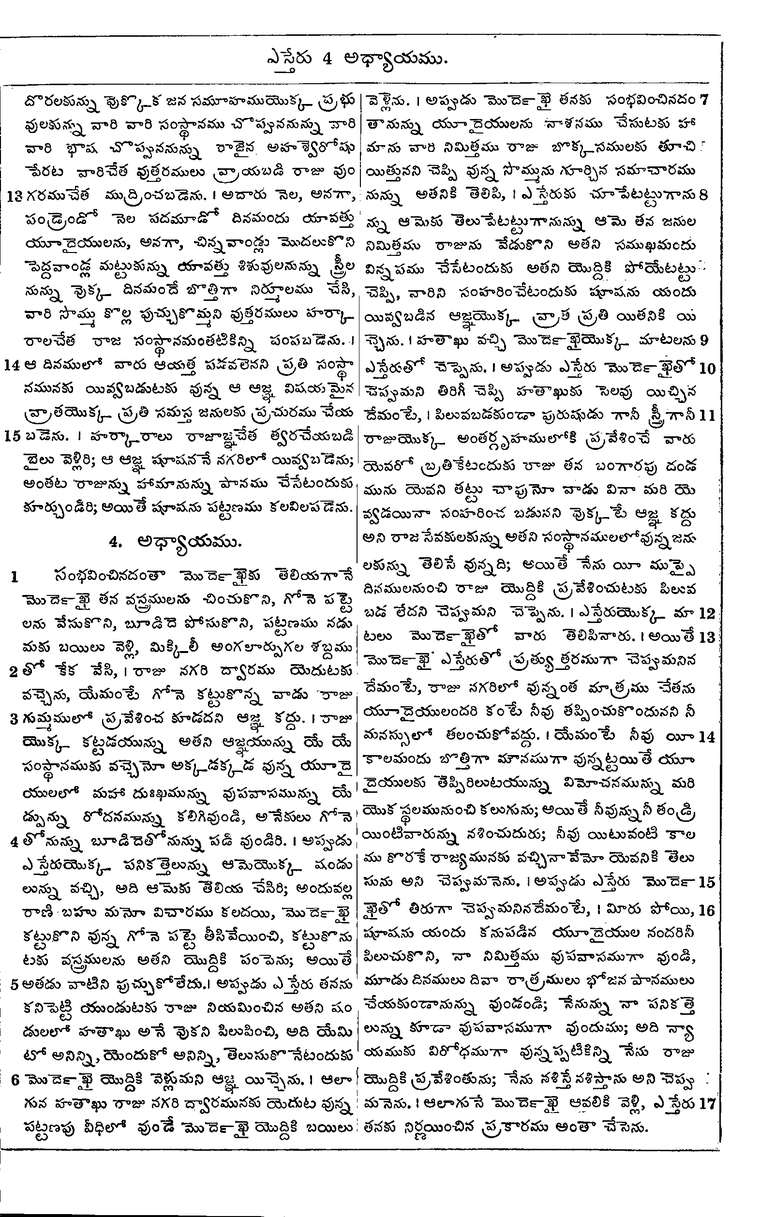 ఎస్తేరు 4 అధ్యాయము.
దొరలకున్ను వొక్కొక జన సమూహముయొక్క ప్రభు
వులకున్ను వారి వారి సంస్థానము చొప్పుననున్ను వారి
వారి భాష చొప్పుననున్ను రాజైన అహశ్వెరోషు
పేరట వారిచేత వుత్తరములు వ్రాయబడి రాజు వుం
13 గరముచేత ముద్రించబడెను. । అదారు నెల, అనగా,
పండ్రెండో నెల పదమూడో దినమందు యావత్తు
యూదైయులను, అనగా, చిన్నవాండ్లు మొదలుకొని
పెద్దవాండ్ల మట్టుకున్ను యావత్తు శిశువులనున్ను స్త్రీల
నున్ను వొక్క దినమందే బొత్తిగా నిర్మూలము చేసి,
వారి సొమ్ము కొల్ల పుచ్చుకొమ్మని వుత్తరములు హర్కా
రాలచేత రాజ సంస్థానమంతటికిన్ని పంపబడెను. ।
14 ఆ దినములో వారు ఆయత్త పడవలెనని ప్రతి సంస్థా
నమునకు యివ్వబడుటకు వున్న ఆ ఆజ్ఞ విషయమైన
వ్రాతయొక్క ప్రతి సమస్త జనులకు ప్రచురము చేయ
15 బడెను. । హర్కారాలు రాజాజ్ఞచేత త్వరచేయబడి
బైలు వెళ్లిరి; ఆ ఆజ్ఞ షూషననే నగరిలో యివ్వబడెను;
అంతట రాజున్ను హామానున్ను పానము చేసేటందుకు
కూర్చుండిరి; అయితే షూషను పట్టణము కలవిలపడెను.
4. అధ్యాయము.
1 సంభవించినదంతా మొర్దెఖైకు తెలియగానే
మొర్దెఖై తన వస్త్రములను చించుకొని, గోనె పట్టె
లను వేసుకొని, బూడిదె పోసుకొని, పట్టణము నడు
మకు బయిలు వెళ్లి, మిక్కిలీ అంగలార్పుగల శబ్దము
2 తో కేక వేసి, । రాజు నగరి ద్వారము యెదుటకు
వచ్చెను, యేమంటే గోనె కట్టుకొన్న వాడు రాజు
3 గుమ్మములో ప్రవేశించ కూడదని ఆజ్ఞ కద్దు. । రాజు
యొక్క కట్టడయున్ను అతని ఆజ్ఞయున్ను యే యే
సంస్థానముకు వచ్చెనో అక్కడక్కడ వున్న యూదై
యులలో మహా దుఃఖమున్ను వుపవాసమున్ను యే
డ్పున్ను రోదనమున్ను కలిగివుండి, అనేకులు గోనె
4 తోనున్ను బూడిదెతోనున్ను పడి వుండిరి. । అప్పుడు
ఎస్తేరుయొక్క పనికత్తెలున్ను ఆమెయొక్క షండు
లున్ను వచ్చి, అది ఆమెకు తెలియ చేసిరి; అందువల్ల
రాణి బహు మనో విచారము కలదయి, మొర్దెఖై
కట్టుకొని వున్న గోనె పట్టె తీసివేయించి, కట్టుకొను
టకు వస్త్రములను అతని యొద్దికి పంపెను; అయితే
5 అతడు వాటిని పుచ్చుకోలేదు. । అప్పుడు ఎస్తేరు తనను
కనిపెట్టి యుండుటకు రాజు నియమించిన అతని షం
డులలో హతాఖు అనే వొకని పిలుపించి, అది యేమి
టో అనిన్ని, యెందుకో అనిన్ని, తెలుసుకొనేటందుకు
6 మొర్దెఖై యొద్దికి వెళ్లుమని ఆజ్ఞ యిచ్చెను. । ఆలా
గున హతాఖు రాజు నగరి ద్వారమునకు యెదుట వున్న
పట్టణపు వీధిలో వుండే మొర్దెఖై యొద్దికి బయిలు
వెళ్లెను. । అప్పుడు మొర్దెఖై తనకు సంభవించినదం 7
తానున్ను యూదైయులను నాశనము చేసుటకు హా
మాను వారి నిమిత్తము రాజు బొక్కసములకు తూచి
యిత్తునని చెప్పి వున్న సొమ్మును గూర్చిన సమాచారము
నున్ను అతనికి తెలిపి, । ఎస్తేరుకు చూపేటట్టుగాను 8
న్ను ఆమెకు తెలుపేటట్టుగానున్ను ఆమె తన జనుల
నిమిత్తము రాజును వేడుకొని అతని సముఖమందు
విన్నపము చేసేటందుకు అతని యొద్దికి పోయేటట్టు
చెప్పి, వారిని సంహరించేటందుకు షూషను యందు
యివ్వబడిన ఆజ్ఞయొక్క వ్రాత ప్రతి యితనికి యి
చ్చెను. । హతాఖు వచ్చి మొర్దెఖైయొక్క మాటలను 9
ఎస్తేరుతో చెప్పెను. । అప్పుడు ఎస్తేరు మొర్దెఖైతో 10
చెప్పుమని తిరిగీ చెప్పి హతాఖుకు సెలవు యిచ్చిన
దేమంటే, । పిలువబడకుండా పురుషుడు గానీ స్త్రీ గానీ 11
రాజుయొక్క అంతర్గృహములోకి ప్రవేశించే వారు
యెవరో బ్రతికేటందుకు రాజు తన బంగారపు దండ
మును యెవని తట్టు చాపునో వాడు వినా మరి యె
వ్వడయినా సంహరించ బడునని వొక్కటే ఆజ్ఞ కద్దు
అని రాజ సేవకులకున్ను అతని సంస్థానములలోవున్న జను
లకున్ను తెలిసే వున్నది; అయితే నేను యీ ముప్పై
దినములనుంచి రాజు యొద్దికి ప్రవేశించుటకు పిలువ
బడ లేదని చెప్పుమని చెప్పెను. । ఎస్తేరుయొక్క మా 12
టలు మొర్దెఖైతో వారు తెలిపినారు. । అయితే 13
మొర్దెఖై ఎస్తేరుతో ప్రత్యుత్తరముగా చెప్పుమనిన
దేమంటే, రాజు నగరిలో వున్నంత మాత్రము చేతను
యూదైయులందరి కంటే నీవు తప్పించుకొందునని నీ
మనస్సులో తలంచుకోవద్దు. । యేమంటే నీవు యీ 14
కాలమందు బొత్తిగా మానముగా వున్నట్టయితే యూ
దైయులకు తెప్పిరిలుటయున్ను విమోచనమున్ను మరి
యొక స్థలమునుంచి కలుగును; అయితే నీవున్ను నీ తండ్రి
యింటివారున్ను నశించుదురు; నీవు యిటువంటి కాల
ము కొరకే రాజ్యమునకు వచ్చినావేమో యెవనికి తెలు
సును అని చెప్పుమనెను. । అప్పుడు ఎస్తేరు మొర్దె 15
ఖైతో తిరుగా చెప్పుమనినదేమంటే, । మీరు పోయి, 16
షూషను యందు కనుపడిన యూదైయుల నందరినీ
పిలుచుకొని, నా నిమిత్తము వుపవాసముగా వుండి,
మూడు దినములు దివా రాత్రములు భోజన పానములు
చేయకుండానున్ను వుండండి; నేనున్ను నా పనికత్తె
లున్ను కూడా వుపవాసముగా వుందుము; అది న్యా
యముకు విరోధముగా వున్నప్పటికిన్ని నేను రాజు
యొద్దికి ప్రవేశింతును; నేను నశిస్తే నశిస్తాను అని చెప్పు
మనెను. । ఆలాగునే మొర్దెఖై ఆవలికి వెళ్లి, ఎస్తేరు 17
తనకు నిర్ణయించిన ప్రకారము అంతా చేసెను.